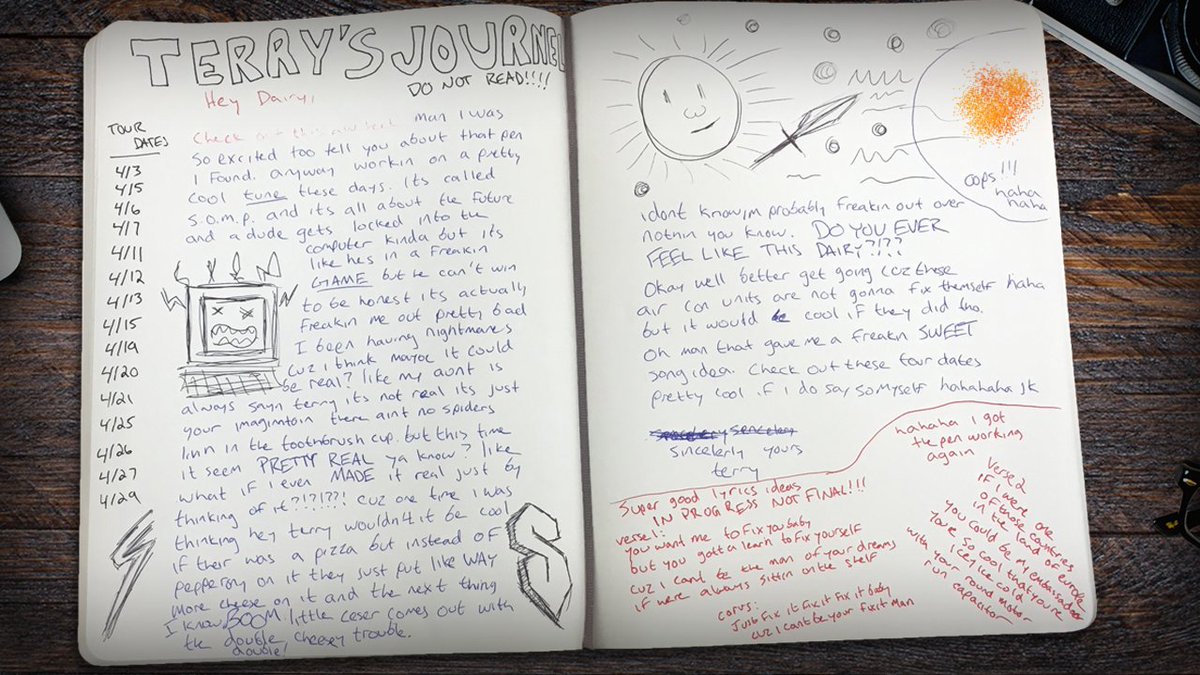 TERRY'S JOURNEL
DO NOT READ!!!!
Hey Dairy,
TOUR
DATES
4/3
4/5
4/6
4/7
4/11
4/12
4/13
4/15
4/19
4/20
4/21
4/25
4/26
4/27
4/29
Check out this new
man I was
So excited too tell you about that pen
I found. anyway workin on a pretty
cool tune these days. Its called
S.O.M.P. and its all about the future
and a dude gets locked into the
computer kinda but its
like hes in a freakin
GAME but he can't win
to be honest its actually
freakin me out pretty bad
I been having nightmares
cuz i think mayoc it could
be real? like my aunt is
always sayn terry its not real its just
your imagintoin there aint no spiders
livin in the toothbrush cup. but this time
it seem PRETTY REAL ya know? like
what if I even MADE it real just by
thinking of it?!?!??! cuz one time I was
thinking hey terry wouldn4t it be cool
if their was a pizza but instead of
pepperony on it they just put like WAY
more cheese on it and the next thing
I know BOOM. little ceser comes out with
the double cheesey trouble.
double!
S
oops!!!
haha
haha
i dont know,im probably freakin out over
nothin you know. DO YOU EVER
FEEL LIKE THIS DAIRY?!??
Okay well better get going cuz these
air con units are not gonna fix themself haha
but it would be cool if they did tho.
Oh man that gave me a freakin SWEET
song idea. Check out these tour dates
pretty cool if i do say so myself hahahaha jk
sincelerly yours
terry
hahaha i got
the pen working
again
Super good lyrics ideas
IN PROGRESS NOT FINAL!!!
verse1:
you want me to fix you baby
but you gotta learn to fix yourself
cuz i cant be the man of your dreams
if were always sittin on the shelf
corus:
Just fix it fix it fix it baby
cuz i cant be your fixit man
verse 2
if i were one
of those countries
in the land of europe
you could be my embassador
youre so cool that you're
icey ice cold
with your round motor
run capacitor